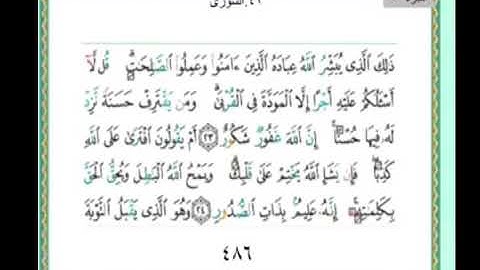 ٤٢.الشورى
ذَٰلِكَ ٱلَّذِى يُبَشِّرُ ٱللَّهُ عِبَادَهُ ٱلَّذِينَ ءَامَنُوا۟ وَعَمِلُوا۟ ٱلصَّٰلِحَٰتِ ۗ قُل لَّآ
أَسْـَٔلُكُمْ عَلَيْهِ أَجْرًا إِلَّا ٱلْمَوَدَّةَ فِى ٱلْقُرْبَىٰ ۗ وَمَن يَقْتَرِفْ حَسَنَةً نَّزِدْ
لَهُۥ فِيهَا حُسْنًا ۚ إِنَّ ٱللَّهَ غَفُورٌ شَكُورٌ ﴿٢٣﴾ أَمْ يَقُولُونَ ٱفْتَرَىٰ عَلَى ٱللَّهِ
كَذِبًا ۖ فَإِن يَشَإِ ٱللَّهُ يَخْتِمْ عَلَىٰ قَلْبِكَ ۗ وَيَمْحُ ٱللَّهُ ٱلْبَٰطِلَ وَيُحِقُّ ٱلْحَقَّ
بِكَلِمَٰتِهِۦٓ ۚ إِنَّهُۥ عَلِيمٌۢ بِذَاتِ ٱلصُّدُورِ ﴿٢٤﴾ وَهُوَ ٱلَّذِى يَقْبَلُ ٱلتَّوْبَةَ
٤٨٦